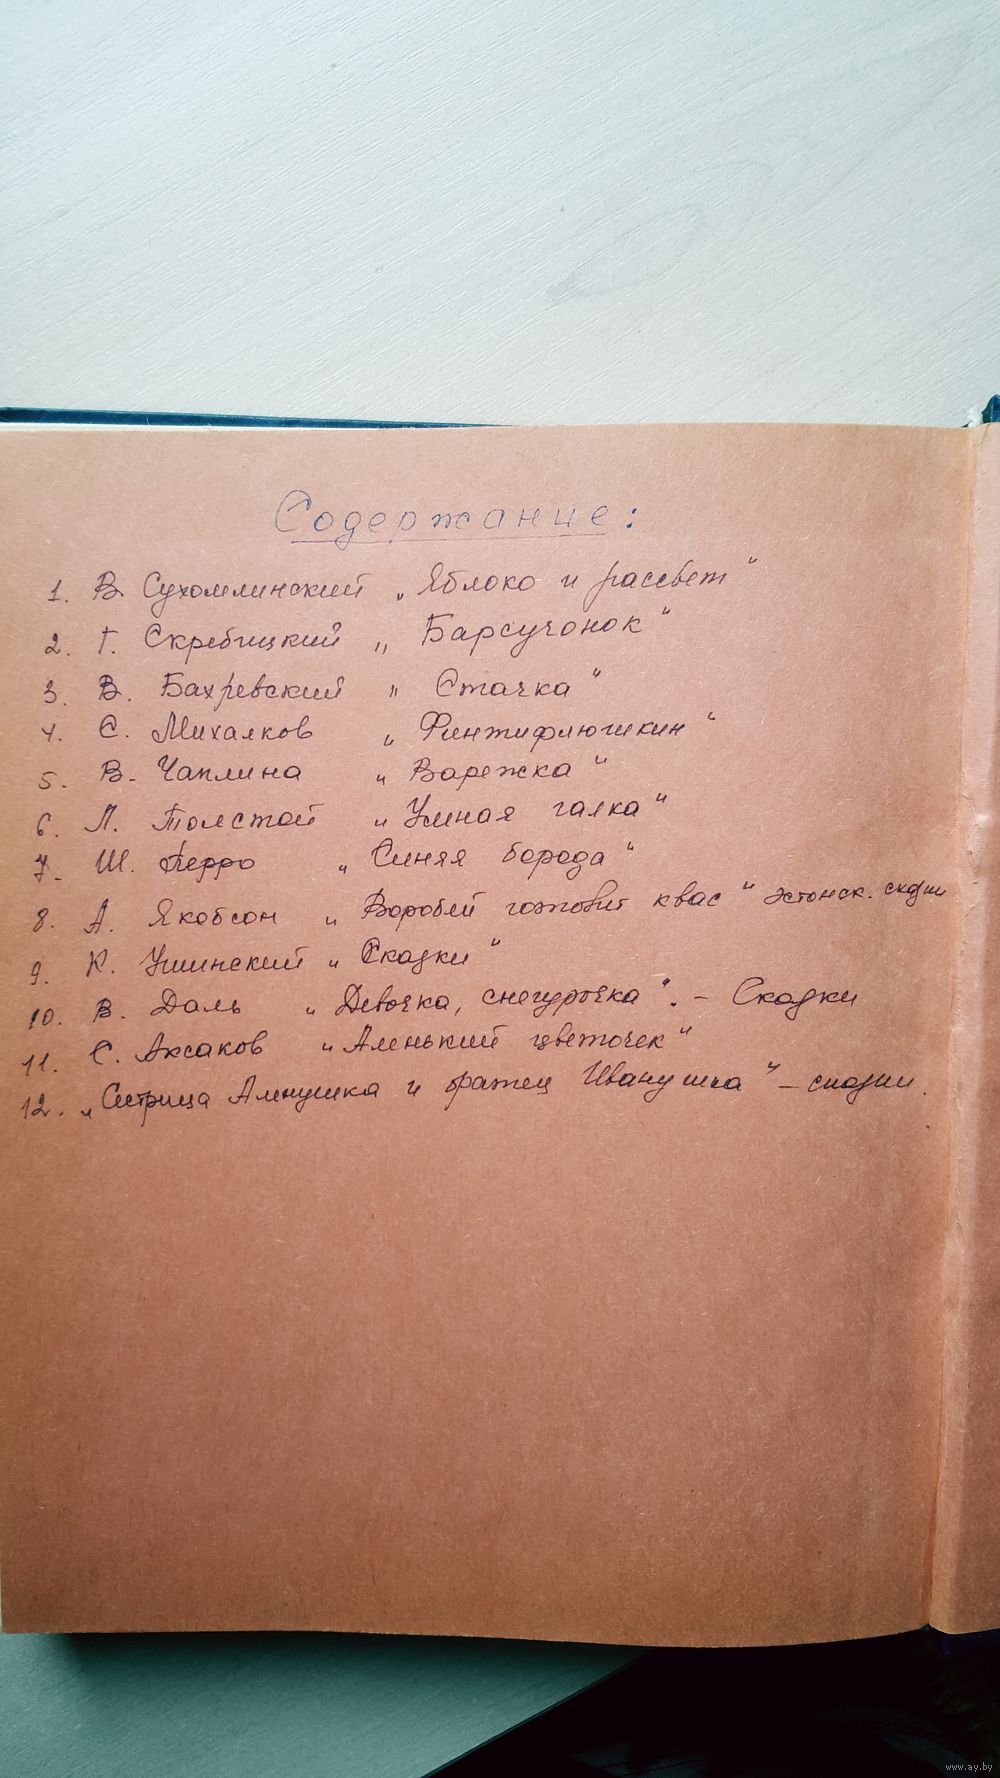 Содержание:
1. В. Сухомлинский „Яблоко и рассвет“
2. Г. Скребицкий „Барсучонок“
3. В. Бахревский „Стачка“
4. С. Михалков „Финтифлюшкин“
5. В. Чаплина „Варежка“
6. Л. Толстой „Умная галка“
7. Ш. Перро „Синяя борода“
8. А. Якобсон „Воробей готовит квас“ эстонск. сказки
9. К. Ушинский „Сказки“
10. В. Даль „Девочка, снегурочка“. – Сказки
11. С. Аксаков „Аленький цветочек“
12. „Сестрица Аленушка и братец Иванушка“ – сказки.
www.ay.by